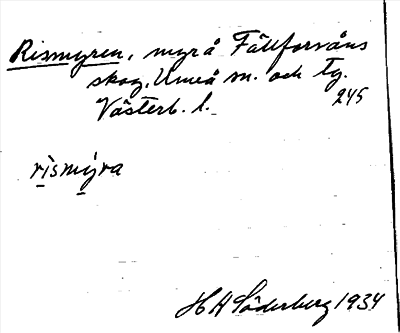 Rismyren, myr å Fällforsvåns
skog, Umeå m. och tg.
Västerb. l. 245
rismyra
H A Söderberg 1934